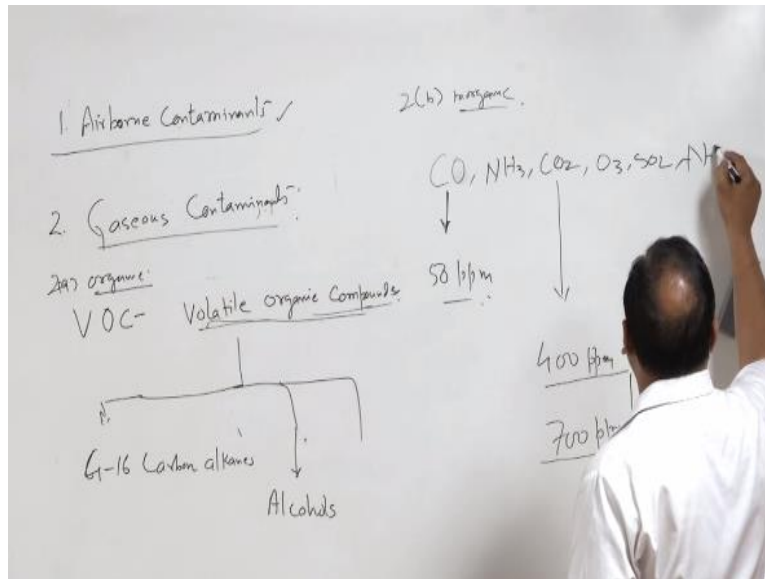 1. Airborne Contaminants ✓
2. Gaseous Contaminants.
2(a) organic.
VOC- Volatile organic Compounds
6-16 Carbon alkanes
Alcohols
2(b) inorganic.
CO, NH3, CO2, O3, SO2, NH
50 ppm
400 ppm
700 ppm